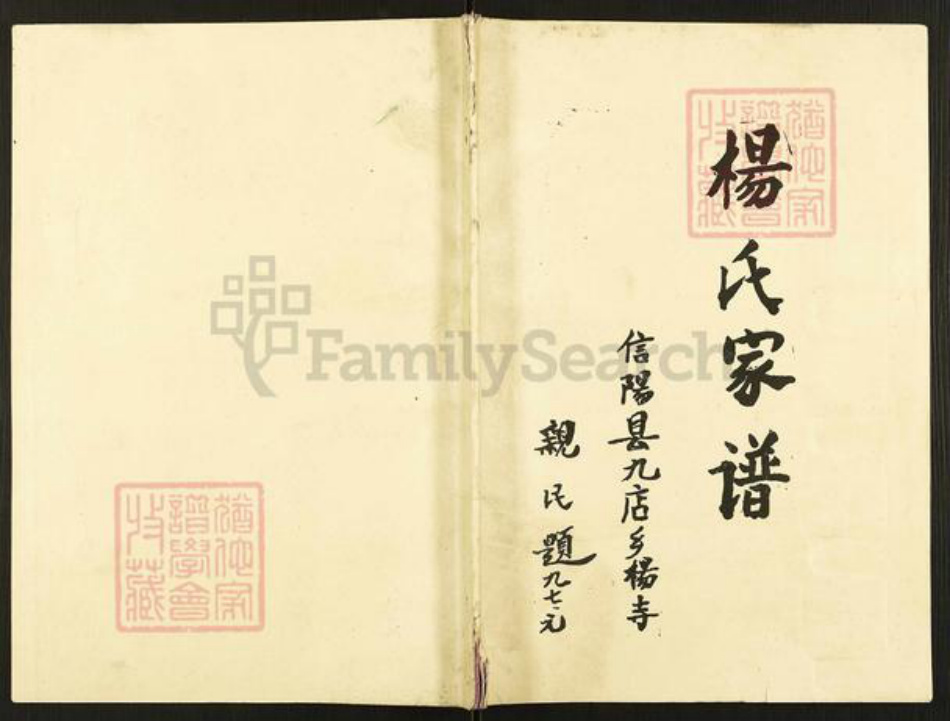 楊氏家谱
信陽县九店乡楊寺
親民題九七.元
猶他家
譜學會
收藏
猶他家
譜學會
收藏
FamilySearch